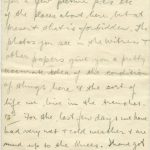 you a few picture p.c.s etc
of the places about here, but at
present that is forbidden. The
photos you see in the Witness &
other papers give you a pretty
accurate idea of the condition
of things here & the sort of
life we live in the trenches.
For the last few days we have
had very wet & cold weather & are
mud up to the knees. I have got